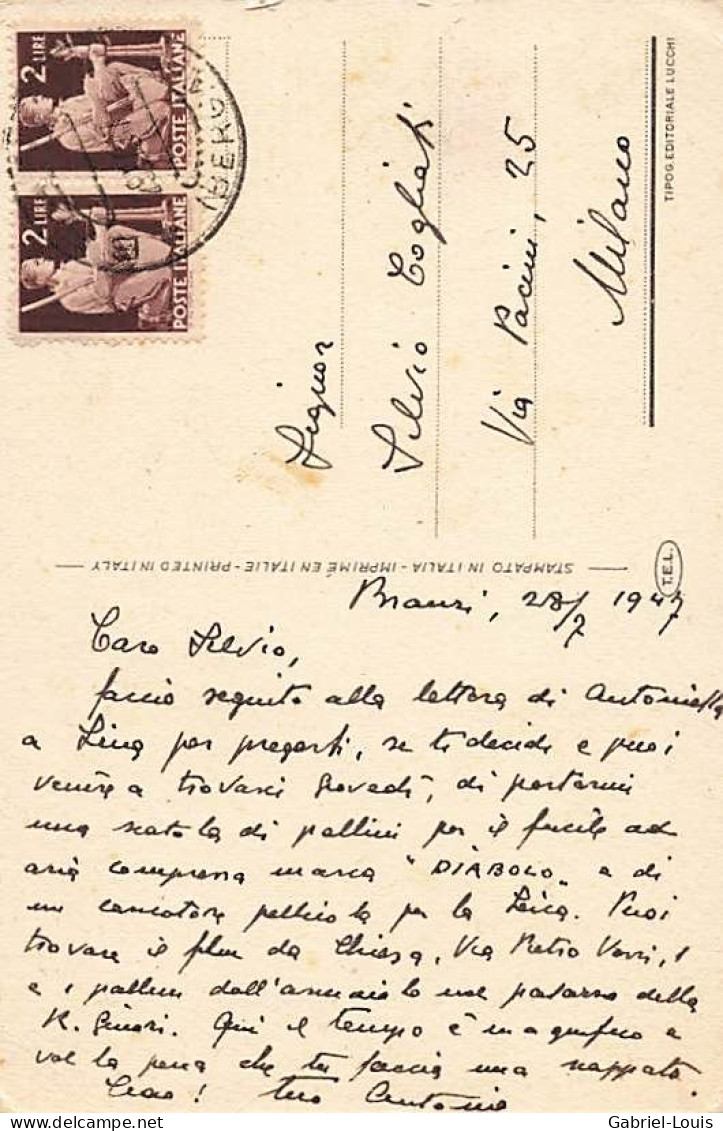 2 LIRE
POSTE ITALIANE
2 LIRE
POSTE ITALIANE
(BERG
Signor
Silvio Cogliati
Via Pacini, 25
Milano
TIPOG. EDITORIALE LUCCHI
STAMPATO IN ITALIA - IMPRIMÉ EN ITALIE - PRINTED IN ITALY
T.E.L.
Branzi, 28/7 1947
Caro Silvio,
faccio seguito alla lettera di Antonietta
a Lina per pregarti, se ti decidi e puoi
venire a trovarci Giovedì, di portarmi
una scatola di pallini per il fucile ad
aria compressa marca "DIABOLO" e di
un caricatore pellicola per la Leica. Puoi
trovare il film da Chiesa, Via Pietro Verri, 1
e i pallini dall'armaiolo nel passaggio della
R. Ginori. Qui il tempo è magnifico e
val la pena che tu faccia una scappata.
Ciao! tuo Antonio
Gabriel-Louis